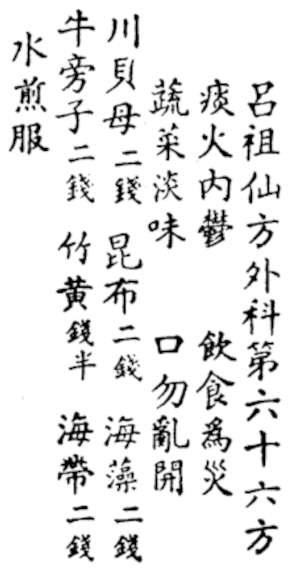 呂祖仙方外科第六十六方
痰火內鬱 飲食為災
蔬菜淡味 口勿亂開
川貝母二錢 昆布二錢 海藻二錢
牛旁子二錢 竹黃錢半 海帶二錢
水煎服